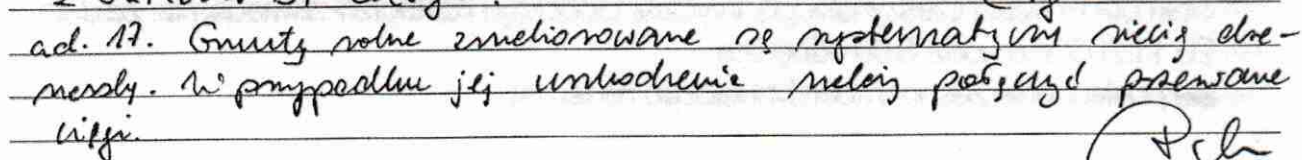 ad. 17. Grunty rolne zmeliorowane są systematyczną siecią dre-
narską. W przypadku jej uszkodzenia należy połączyć przerwane
ciągi.